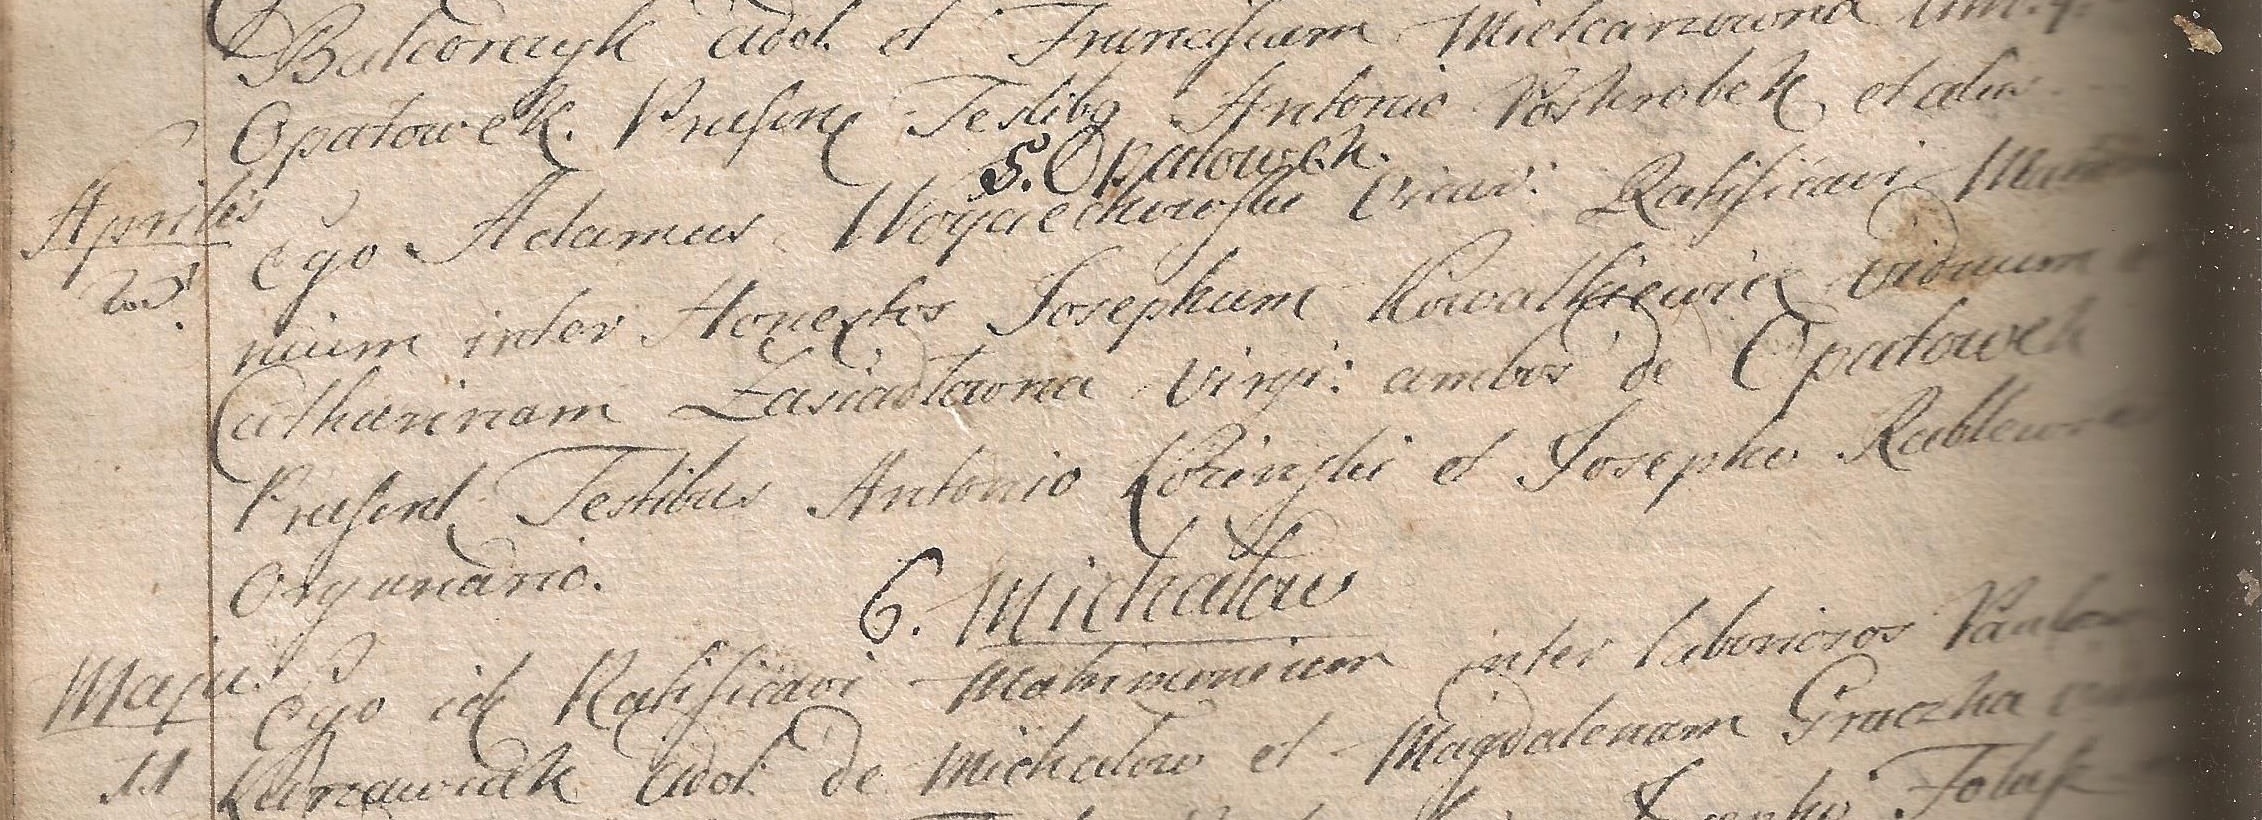 Balcorczyk adol. et Franciscam Mielcarzowna
Opatowek. Presente Testibg Antonio Poskrobek et aliis
5. Opatowek.
Aprilis Ego Adamus Woyciechowski Vicar: Ratificavi Matrimo
nium inter Honestos Josephum Kowalkiewicz viduum et
Catharinam Zasiadlowna Virgi: ambos de Opatowek
Present Testibus Antonio Kozinski et Josepho
Organario.
6. Michałow
Maji Ego id Ratificavi Matrimonium inter laboriosos
11 Kurzawiak adol. de Michalow et Magdalenam Graczka